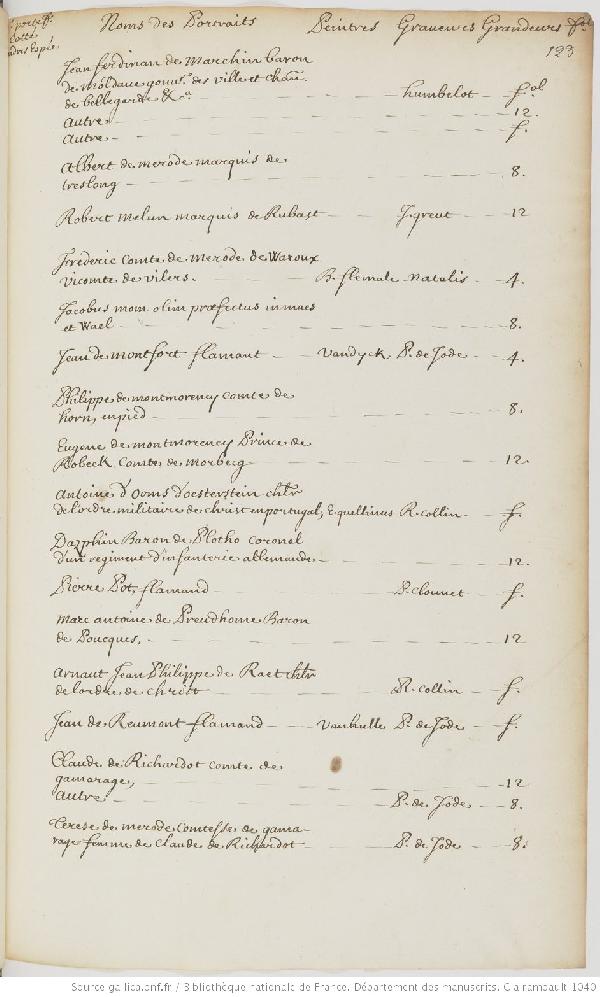 Noms des Portraits Peintres Graveurs Grandeurs fol
123
Jean ferdinan de Marchin baron
de Moldave gouvr. des ville et chau.
de bellegarde &ca humbelot fol
autre 12.
autre f.
Albert de merode marquis de
treslong 8.
Robert Melun marquis de Rubast J. greut 12
Frederic Comte de Merode de Waroux
vicomte de vilers. B. flemale Natalis 4.
Jacobus mom olim præfectus in maes
et Wael 8.
Jean de montfort flamant Vandyck P. de Jode 4.
Philippe de montmorency comte de
horn, en pied 8.
Eugene de montmorency Prince de
Robeck Comte de morbecg 12.
Antoine d'ooms d'oesterstein chlr
de l'ordre militaire de christ en portugal, E. quellinus R. collin f.
Dauphin Baron de Plotho Coronel
d'un regiment d'infanterie allemande 12.
Pierre Pot, flamand P. Clouwet f.
Marc antoine de Preudhome Baron
de Poucques, 12
Arnaut Jean Philippe de Raet chlr
de l'ordre de christ R. collin f.
Jean de Reumont flamand vanhulle P. de Jode f.
Claude de Richardot comte de
gamarage, 12
autre P. de Jode 8.
Terese de merode Comtesse de gama-
rage femme de Claude de Richardot P. de Jode 8.
Source gallica.bnf.fr / Bibliothèque nationale de France. Département des manuscrits. Clairambault 1040